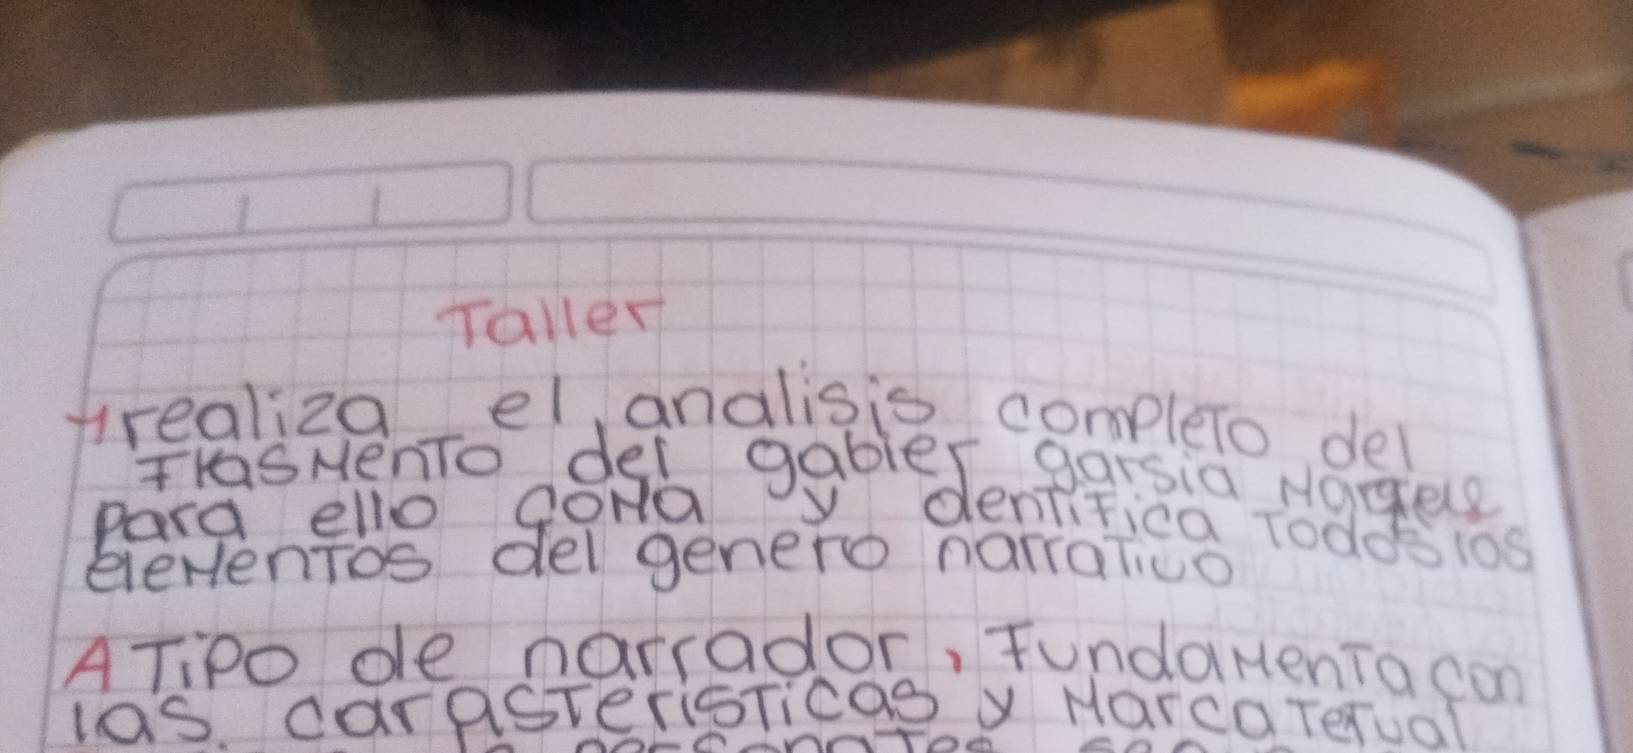 Taller
1 realiza el analisis completo del
frasmento del gabier garsia Margeuz
para ello goma y dentifica Todos los
elementos del genero narrativo
A Tipo de narrador, fundamenta con
las carasteristicas y Marca Tetual